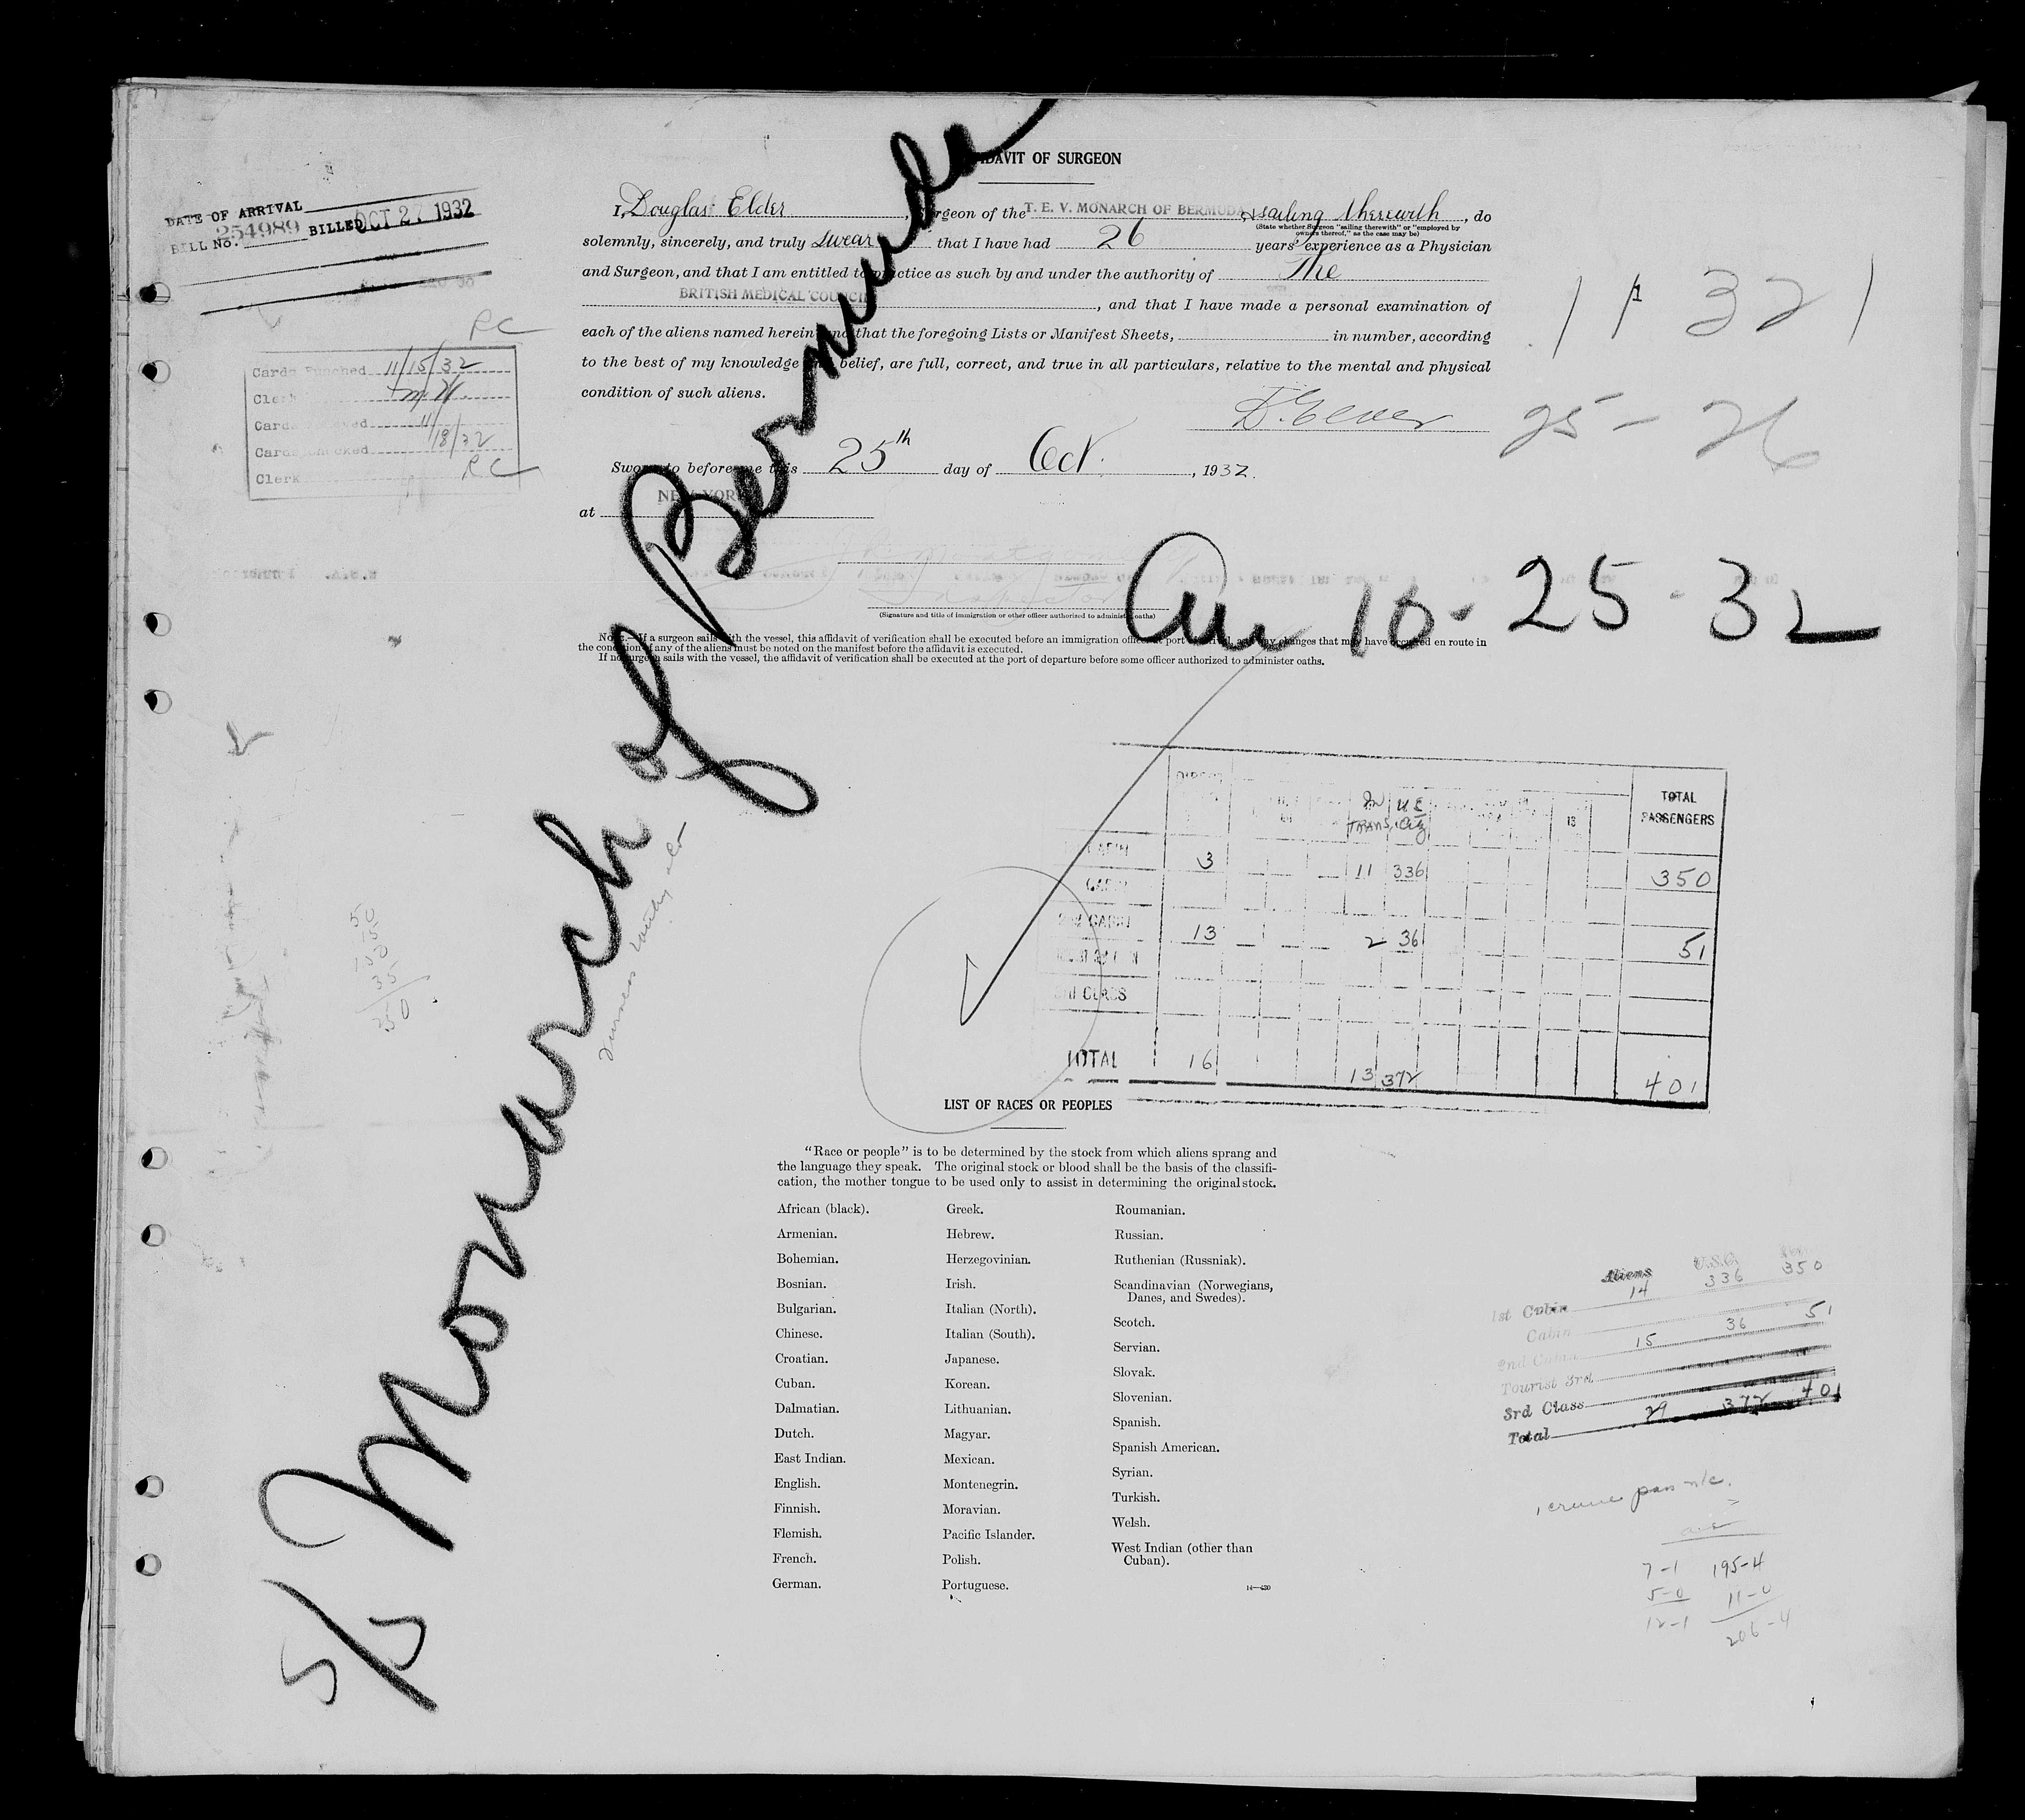 AFFIDAVIT OF SURGEON
DATE OF ARRIVAL
BILL No. 254989 BILLED OCT 27 1932
I, Douglas Elder, Surgeon of the T. E. V. MONARCH OF BERMUDA sailing therewith, do
(State whether Surgeon "sailing therewith" or "employed by
owners thereof," as the case may be)
solemnly, sincerely, and truly swear that I have had 26 years' experience as a Physician
and Surgeon, and that I am entitled to practice as such by and under the authority of The
BRITISH MEDICAL COUNCIL, and that I have made a personal examination of
each of the aliens named herein and that the foregoing Lists or Manifest Sheets, in number, according
to the best of my knowledge and belief, are full, correct, and true in all particulars, relative to the mental and physical
condition of such aliens.
D. Elder
Sworn to before me this 25th day of Oct., 1932.
at NEW YORK
(Signature and title of immigration or other officer authorized to administer oaths)
NOTE.—If a surgeon sails with the vessel, this affidavit of verification shall be executed before an immigration officer at port of arrival, and any changes that may have occurred en route in
the condition of any of the aliens must be noted on the manifest before the affidavit is executed.
If no surgeon sails with the vessel, the affidavit of verification shall be executed at the port of departure before some officer authorized to administer oaths.
RC
Cards Punched 11/15/32
Clerk
Cards 11/18/32
Cards Checked
Clerk RC
1 1 321
25 - 26
Arr 10-25-32
S/S Monarch of Bermuda
50
350
TOTAL PASSENGERS
In TRANS. U.S. Ctz
13
CABIN 3 11 336 350
CABIN
2nd CABIN 13 2 36 51
3rd CLASS
TOTAL 16 13 372 401
LIST OF RACES OR PEOPLES
"Race or people" is to be determined by the stock from which aliens sprang and
the language they speak. The original stock or blood shall be the basis of the classifi-
cation, the mother tongue to be used only to assist in determining the original stock.
African (black).
Armenian.
Bohemian.
Bosnian.
Bulgarian.
Chinese.
Croatian.
Cuban.
Dalmatian.
Dutch.
East Indian.
English.
Finnish.
Flemish.
French.
German.
Greek.
Hebrew.
Herzegovinian.
Irish.
Italian (North).
Italian (South).
Japanese.
Korean.
Lithuanian.
Magyar.
Mexican.
Montenegrin.
Moravian.
Pacific Islander.
Polish.
Portuguese.
Roumanian.
Russian.
Ruthenian (Russniak).
Scandinavian (Norwegians,
Danes, and Swedes).
Scotch.
Servian.
Slovak.
Slovenian.
Spanish.
Spanish American.
Syrian.
Turkish.
Welsh.
West Indian (other than
Cuban).
14—430
Aliens U.S.C.
1st Cabin 14 336 350
Cabin
2nd Cabin 15 36 51
Tourist 3rd
3rd Class
Total 29 372 401
7-1 195-4
5-0 11-0
12-1 206-4